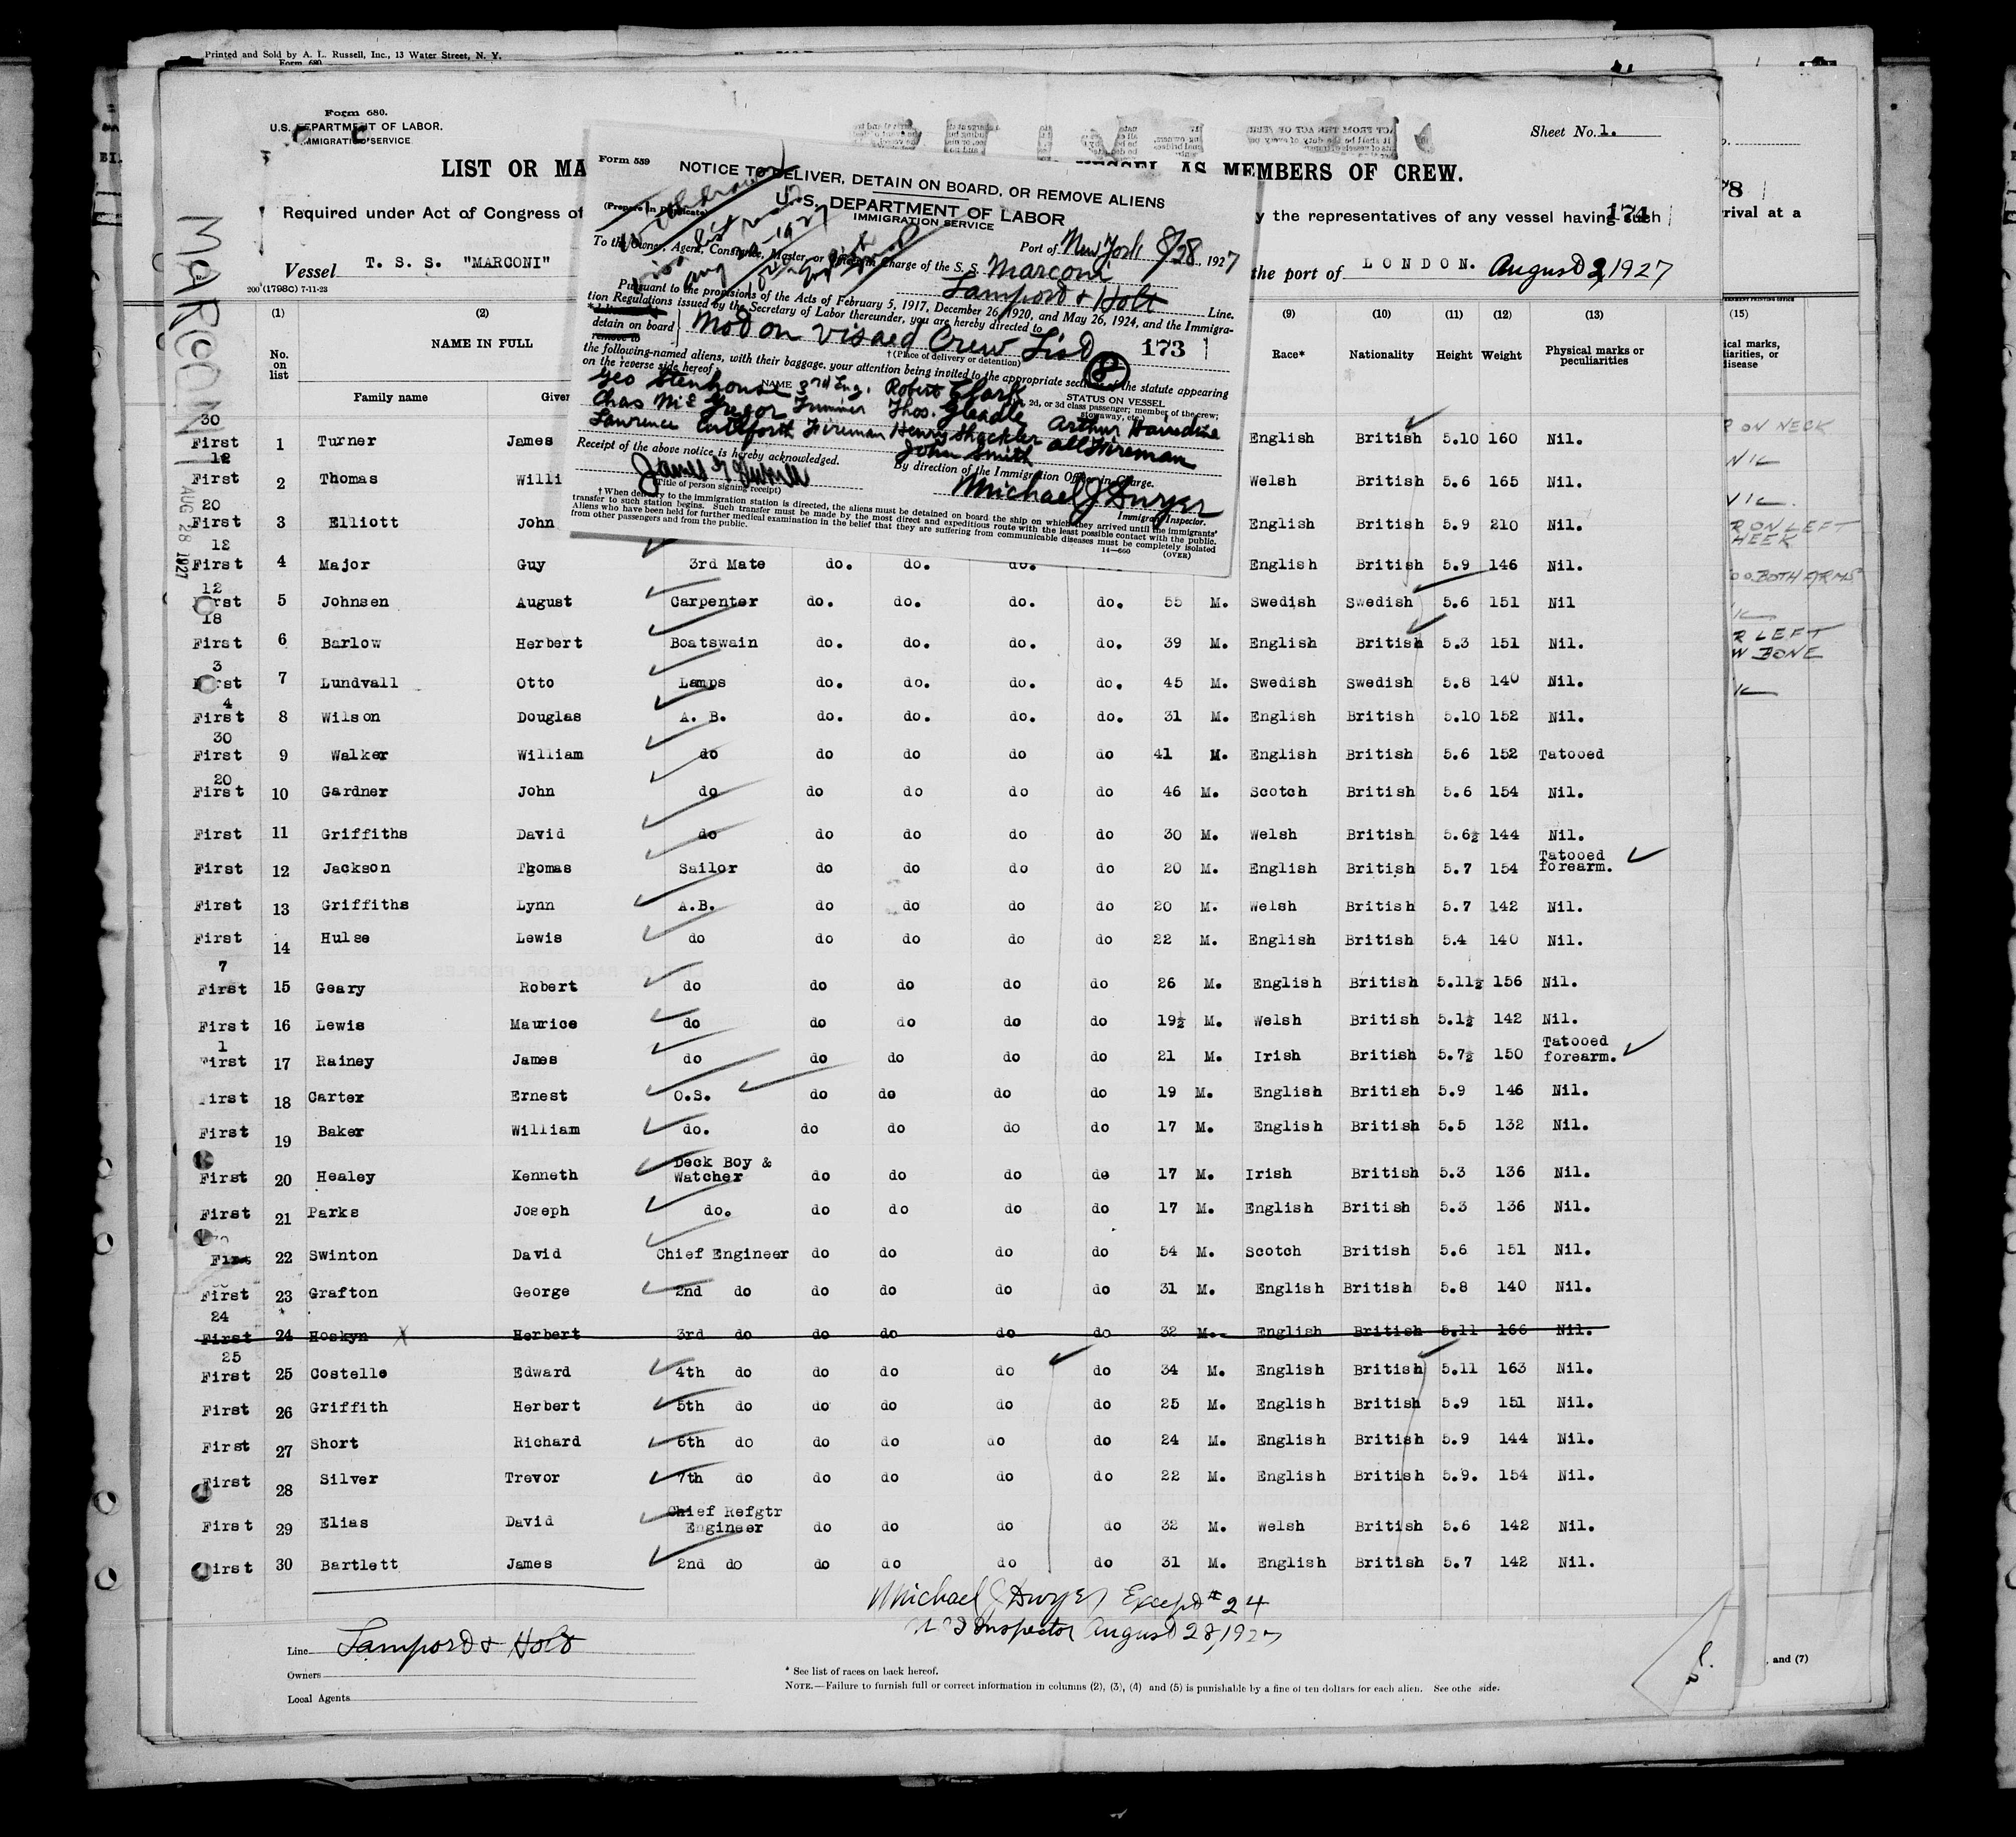 Printed and Sold by A. L. Russell, Inc., 13 Water Street, N. Y.
Form 680
Form 680.
U.S. DEPARTMENT OF LABOR.
IMMIGRATION SERVICE
Sheet No. 1.
LIST OR MA
VESSEL AS MEMBERS OF CREW.
Required under Act of Congress of
y the representatives of any vessel having such
174
78
rrival at a
Vessel T. S. S. "MARCONI"
the port of LONDON. August 2, 1927
200 (1798C) 7-11-23
MARCONI
AUG 28 1927
Form 559
NOTICE TO DELIVER, DETAIN ON BOARD, OR REMOVE ALIENS
(Prepare in Duplicate)
U. S. DEPARTMENT OF LABOR
IMMIGRATION SERVICE
Port of New York 8/28, 1927
To the Owner, Agent, Consignee, Master, or Officer in Charge of the S. S. Marconi
Lamport & Holt Line.
Pursuant to the provisions of the Acts of February 5, 1917, December 26, 1920, and May 26, 1924, and the Immigra-
tion Regulations issued by the Secretary of Labor thereunder, you are hereby directed to
detain on board Not on Visaed Crew List 173
remove to
† (Place of delivery or detention) 8
the following-named aliens, with their baggage, your attention being invited to the appropriate section of the statute appearing
on the reverse side hereof:
NAME
STATUS ON VESSEL
2d, or 3d class passenger; member of the crew; stowaway, etc.)
Geo Stenhouse 3rd Eng. Robert Clark
Chas McGregor Trimmer Thos. Gleadle Arthur Hairsdine
Lawrence Fireman Henry Shackler all Fireman
John Smith
Receipt of the above notice is hereby acknowledged.
By direction of the Immigration Officer in Charge.
(Title of person signing receipt)
Michael J Dwyer
Immigrant Inspector.
† When delivery to the immigration station is directed, the aliens must be detained on board the ship on which they arrived until the immigrants'
transfer to such station begins. Such transfer must be made by the most direct and expeditious route with the least possible contact with the public.
Aliens who have been held for further medical examination in the belief that they are suffering from communicable diseases must be completely isolated
from other passengers and from the public.
14—660 (OVER)
(1) (2) (9) (10) (11) (12) (13) (15)
No. on list NAME IN FULL Race* Nationality Height Weight Physical marks or peculiarities
Family name Given
30 First 1 Turner James English British 5.10 160 Nil.
12 First 2 Thomas Willi Welsh British 5.6 165 Nil.
20 First 3 Elliott John English British 5.9 210 Nil.
12 First 4 Major Guy 3rd Mate do. do. do. English British 5.9 146 Nil.
12 First 5 Johnsen August Carpenter do. do. do. do. 55 M. Swedish Swedish 5.6 151 Nil
18 First 6 Barlow Herbert Boatswain do. do. do. do. 39 M. English British 5.3 151 Nil.
3 First 7 Lundvall Otto Lamps do. do. do. do. 45 M. Swedish Swedish 5.8 140 Nil.
4 First 8 Wilson Douglas A. B. do. do. do. do. 31 M. English British 5.10 152 Nil.
30 First 9 Walker William do do do do do 41 M. English British 5.6 152 Tatooed
20 First 10 Gardner John do do do do do 46 M. Scotch British 5.6 154 Nil.
First 11 Griffiths David do do do do do 30 M. Welsh British 5.6½ 144 Nil.
First 12 Jackson Tgomas Sailor do do do do 20 M. English British 5.7 154 Tatooed forearm.
First 13 Griffiths Lynn A.B. do do do do 20 M. Welsh British 5.7 142 Nil.
First 14 Hulse Lewis do do do do do 22 M. English British 5.4 140 Nil.
7 First 15 Geary Robert do do do do do 26 M. English British 5.11½ 156 Nil.
First 16 Lewis Maurice do do do do do 19½ M. Welsh British 5.1½ 142 Nil.
1 First 17 Rainey James do do do do do 21 M. Irish British 5.7½ 150 Tatooed forearm.
First 18 Carter Ernest O.S. do do do do 19 M. English British 5.9 146 Nil.
First 19 Baker William do. do do do do 17 M. English British 5.5 132 Nil.
First 20 Healey Kenneth Deck Boy & Watcher do do do do 17 M. Irish British 5.3 136 Nil.
First 21 Parks Joseph do. do do do do 17 M. English British 5.3 136 Nil.
First 22 Swinton David Chief Engineer do do do do 54 M. Scotch British 5.6 151 Nil.
First 23 Grafton George 2nd do do do do do 31 M. English British 5.8 140 Nil.
24 First 24 Hoskyn X Herbert 3rd do do do do do 32 M. English British 5.11 166 Nil.
25 First 25 Costelle Edward 4th do do do do do 34 M. English British 5.11 163 Nil.
First 26 Griffith Herbert 5th do do do do do 25 M. English British 5.9 151 Nil.
First 27 Short Richard 6th do do do do do 24 M. English British 5.9 144 Nil.
First 28 Silver Trevor 7th do do do do do 22 M. English British 5.9. 154 Nil.
First 29 Elias David Chief Refgtr Engineer do do do do 32 M. Welsh British 5.6 142 Nil.
First 30 Bartlett James 2nd do do do do do 31 M. English British 5.7 142 Nil.
R ON NECK
NIL
NIL.
R ON LEFT
HEEK
OO BOTH ARMS
R LEFT
W BONE
Michael J Dwyer Except #24
Inspector August 28, 1927
Line Lamport & Holt
Owners
Local Agents
* See list of races on back hereof.
NOTE.—Failure to furnish full or correct information in columns (2), (3), (4) and (5) is punishable by a fine of ten dollars for each alien. See othe side.
, and (7)